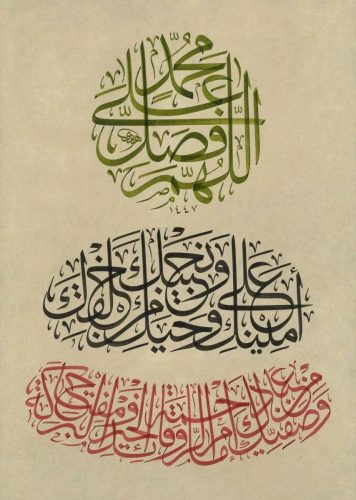 اللهم فصل على محمد
١٤٤٧
أمينك على وحيك ونجيبك من خلقك
وصفيك من عبادك إمام الرحمة وقائد الخير ومفتاح البركة